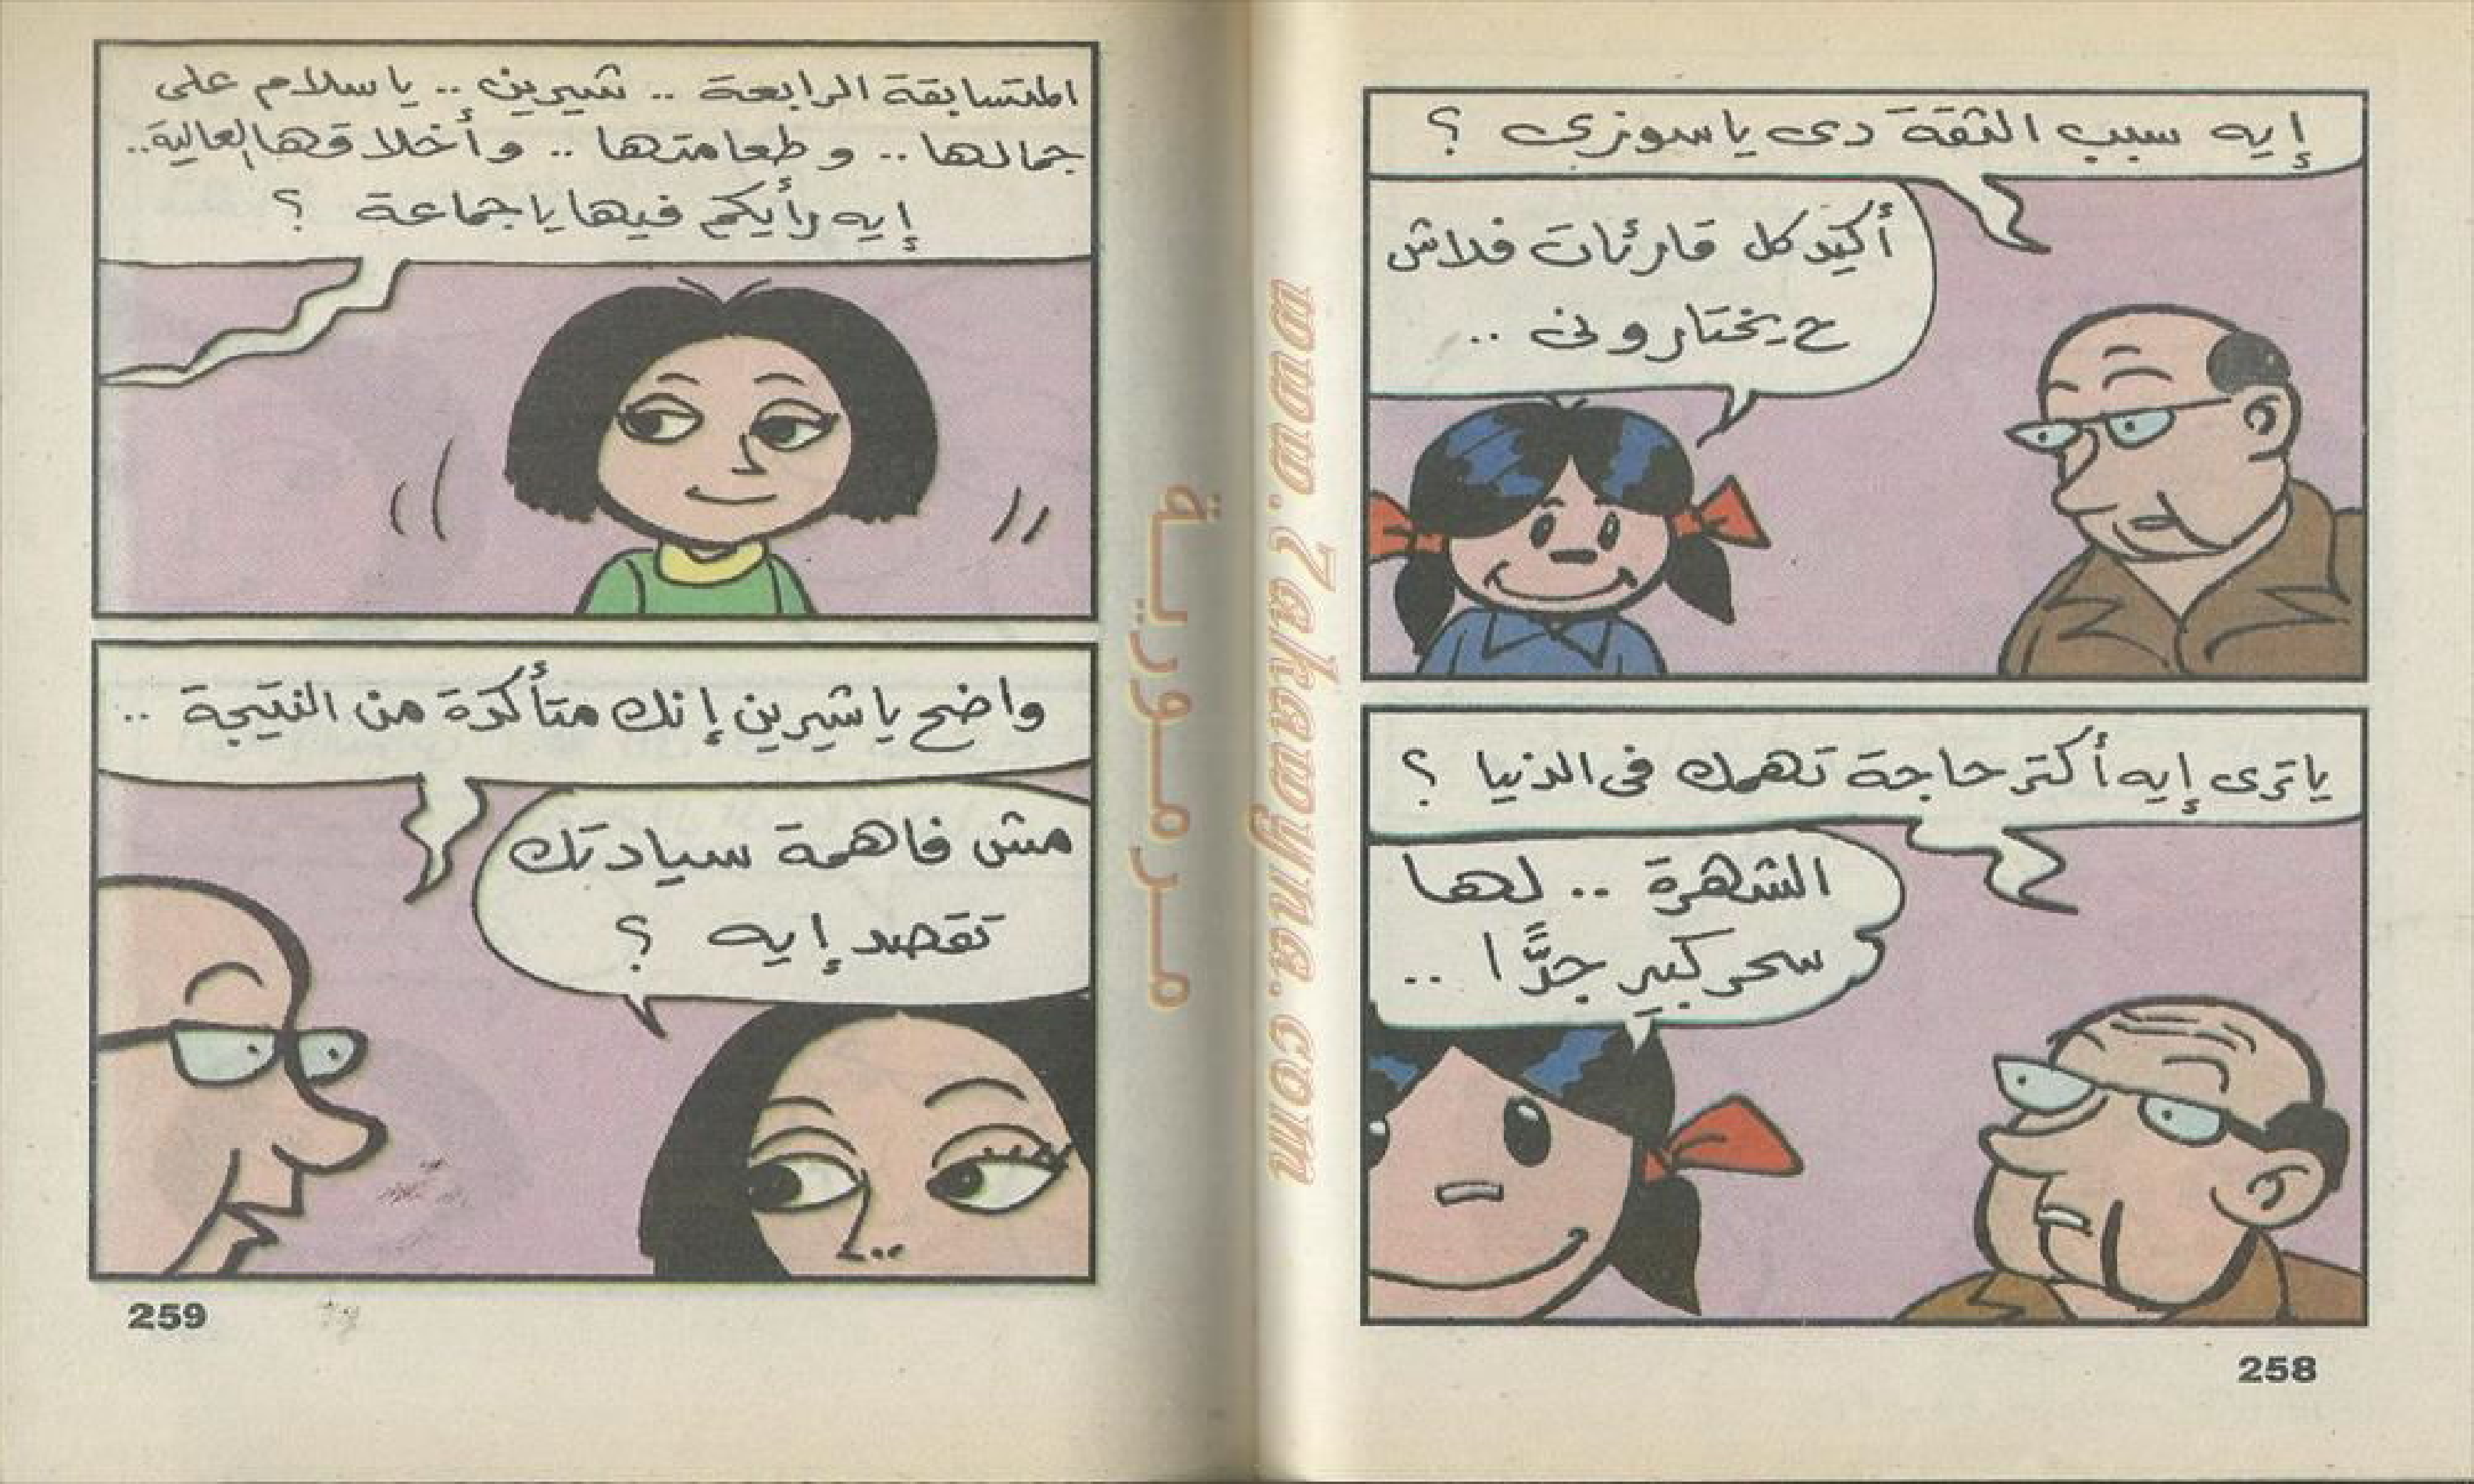 إيه سبب الثقة دى يا سوزى ؟
أكيد كل قارئات فلاش
ح يختارونى ..
يا ترى إيه أكتر حاجة تهمك فى الدنيا ؟
الشهرة .. لها
سحر كبير جدًّا ..
258
www.Zakawyna.com
مرمورية
المتسابقة الرابعة .. شيرين .. يا سلام على
جمالها .. و طعامتها .. و أخلاقها العالية ..
إيه رأيكم فيها يا جماعة ؟
واضح يا شيرين إنك متأكدة من النتيجة ..
مش فاهمة سيادتك
تقصد إيه ؟
259